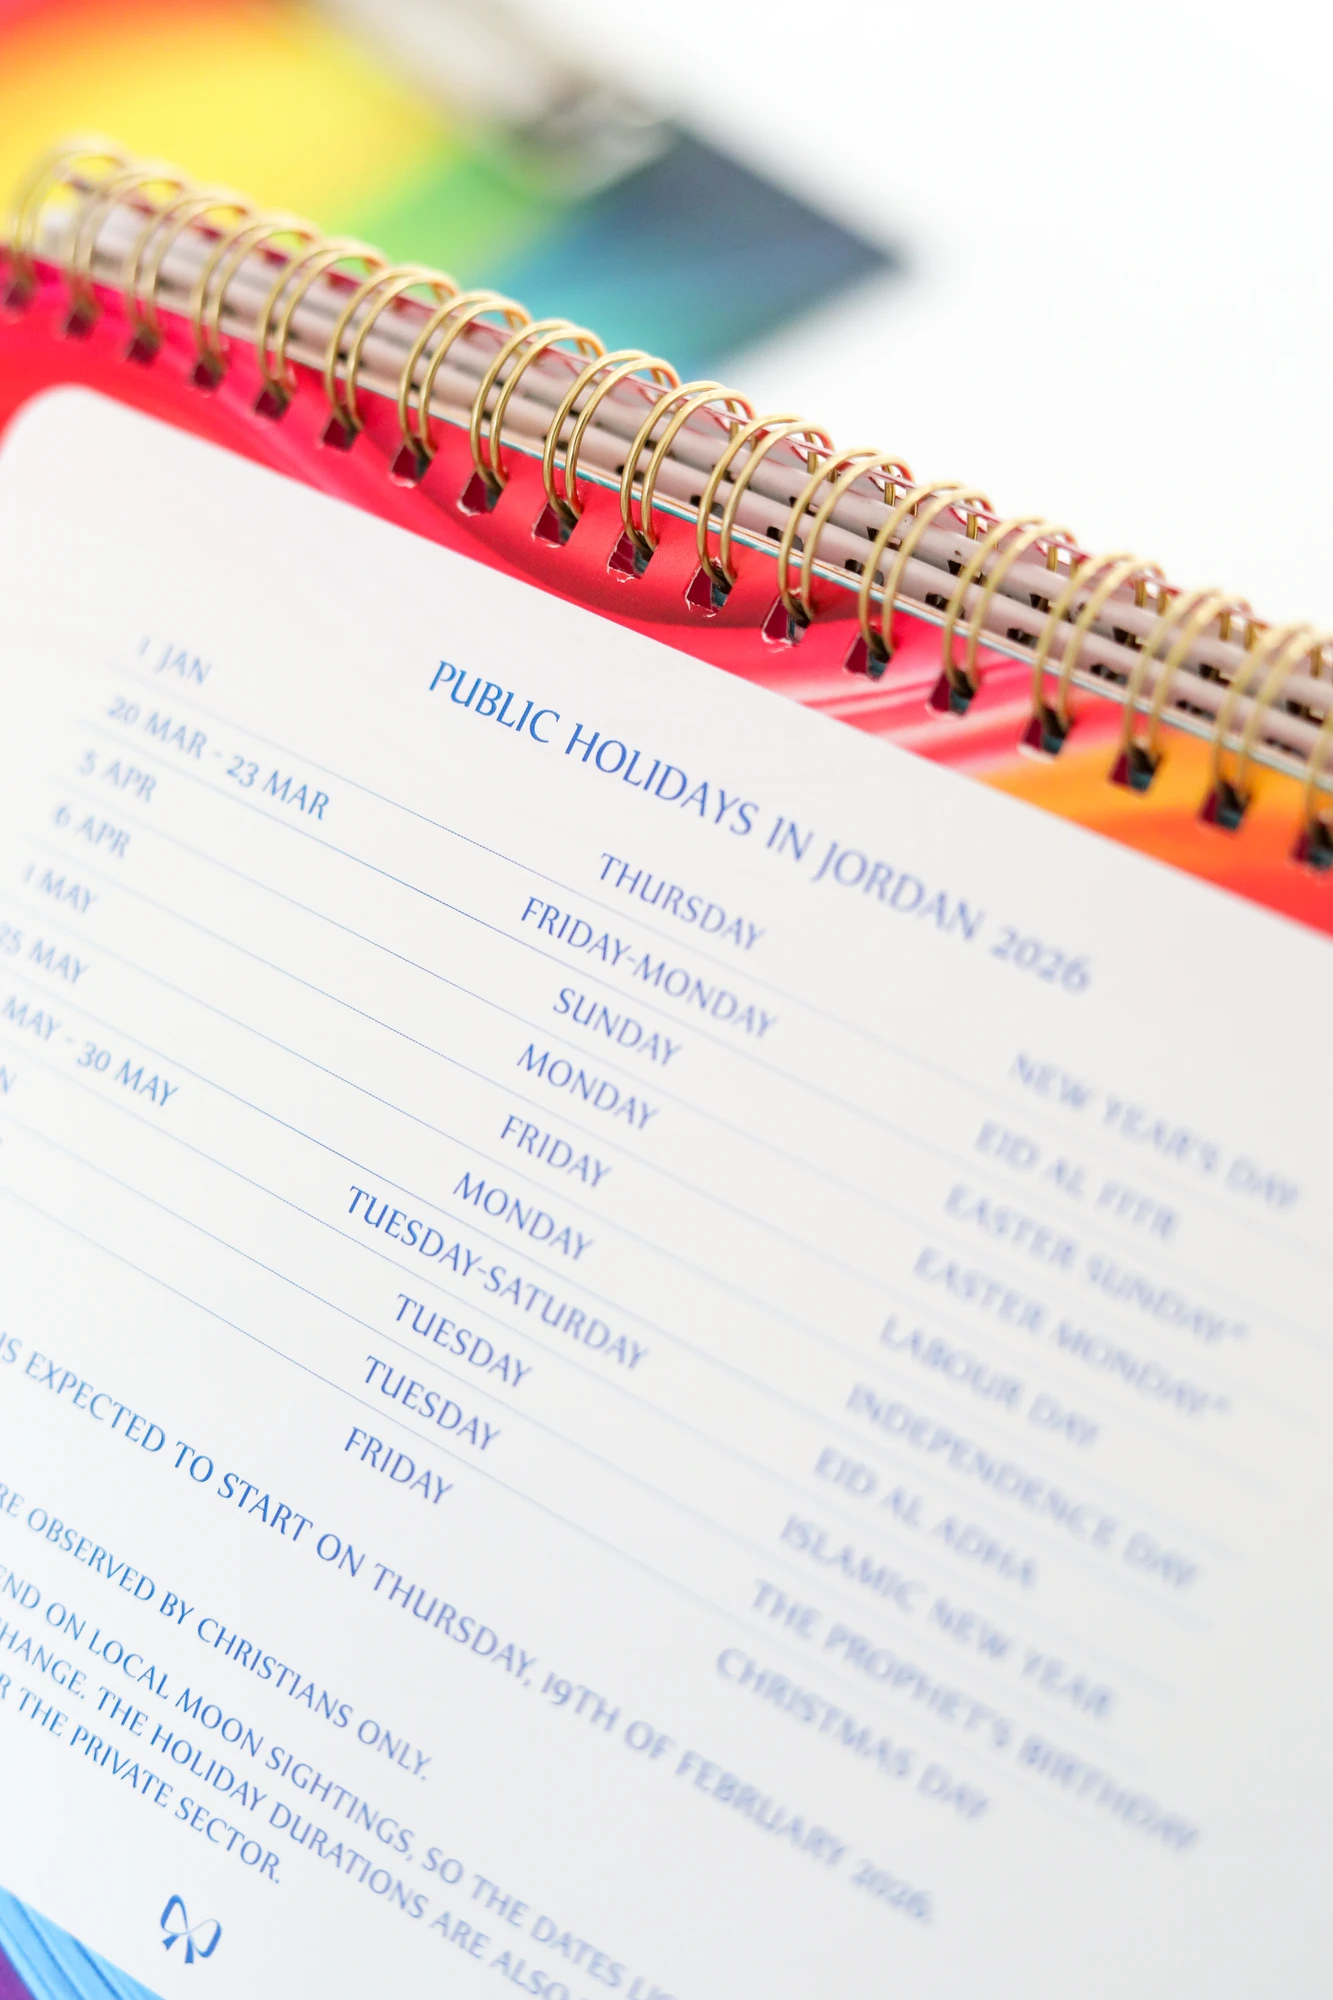 PUBLIC HOLIDAYS IN JORDAN 2026
1 JAN THURSDAY NEW YEAR'S DAY
20 MAR - 23 MAR FRIDAY-MONDAY EID AL FITR
5 APR SUNDAY EASTER SUNDAY*
6 APR MONDAY EASTER MONDAY*
1 MAY FRIDAY LABOUR DAY
25 MAY MONDAY INDEPENDENCE DAY
MAY - 30 MAY TUESDAY-SATURDAY EID AL ADHA
TUESDAY ISLAMIC NEW YEAR
TUESDAY THE PROPHET'S BIRTHDAY
FRIDAY CHRISTMAS DAY
IS EXPECTED TO START ON THURSDAY, 19TH OF FEBRUARY 2026.
OBSERVED BY CHRISTIANS ONLY.
ON LOCAL MOON SIGHTINGS, SO THE DATES
THE HOLIDAY DURATIONS ARE ALSO
THE PRIVATE SECTOR.